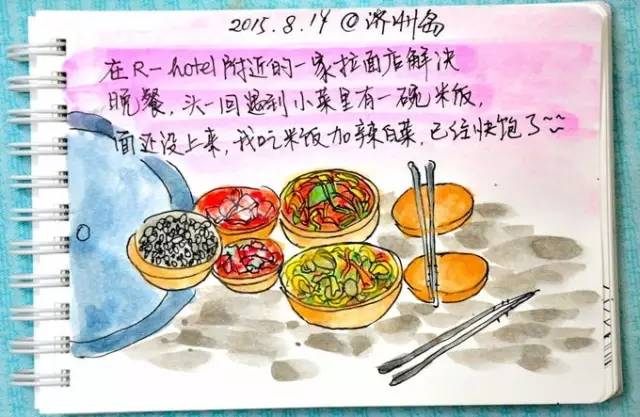 2015.8.14 @济州岛
在R-hotel附近的一家拉面店解决
晚餐,头一回遇到小菜里有一碗米饭,
面还没上来,我吃米饭加辣白菜,已经快饱了~~